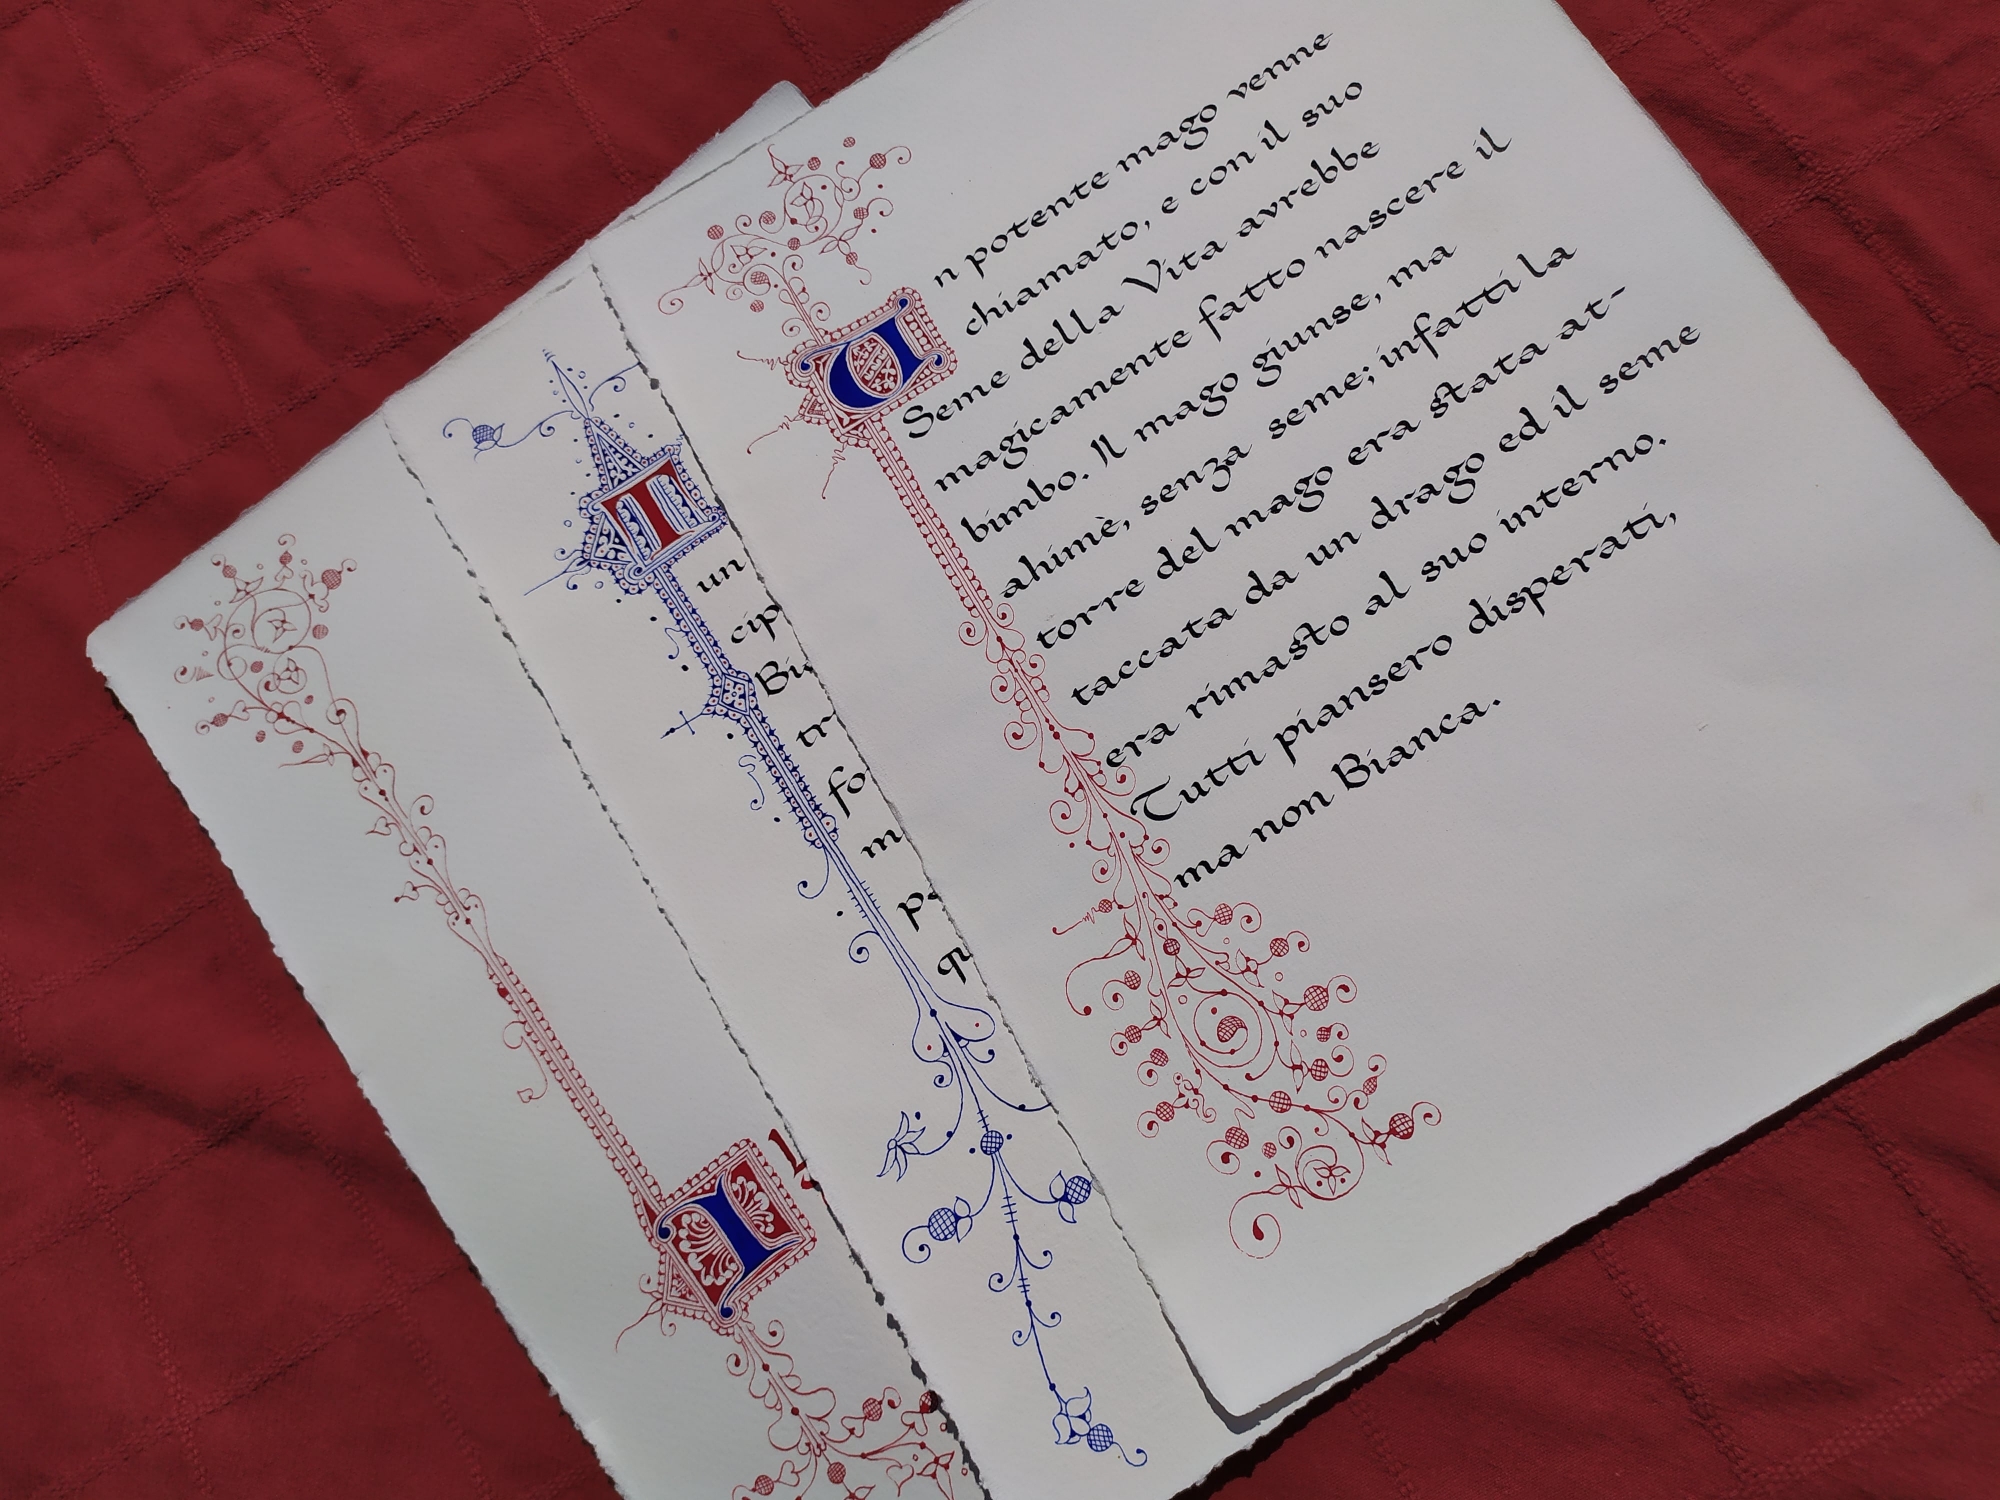 Un potente mago venne
chiamato, e con il suo
Seme della Vita avrebbe
magicamente fatto nascere il
bimbo. Il mago giunse, ma
ahimè, senza seme; infatti la
torre del mago era stata at-
taccata da un drago ed il seme
era rimasto al suo interno.
Tutti piansero disperati,
ma non Bianca.
I
un
cip
Bi
tr
fo
m
I